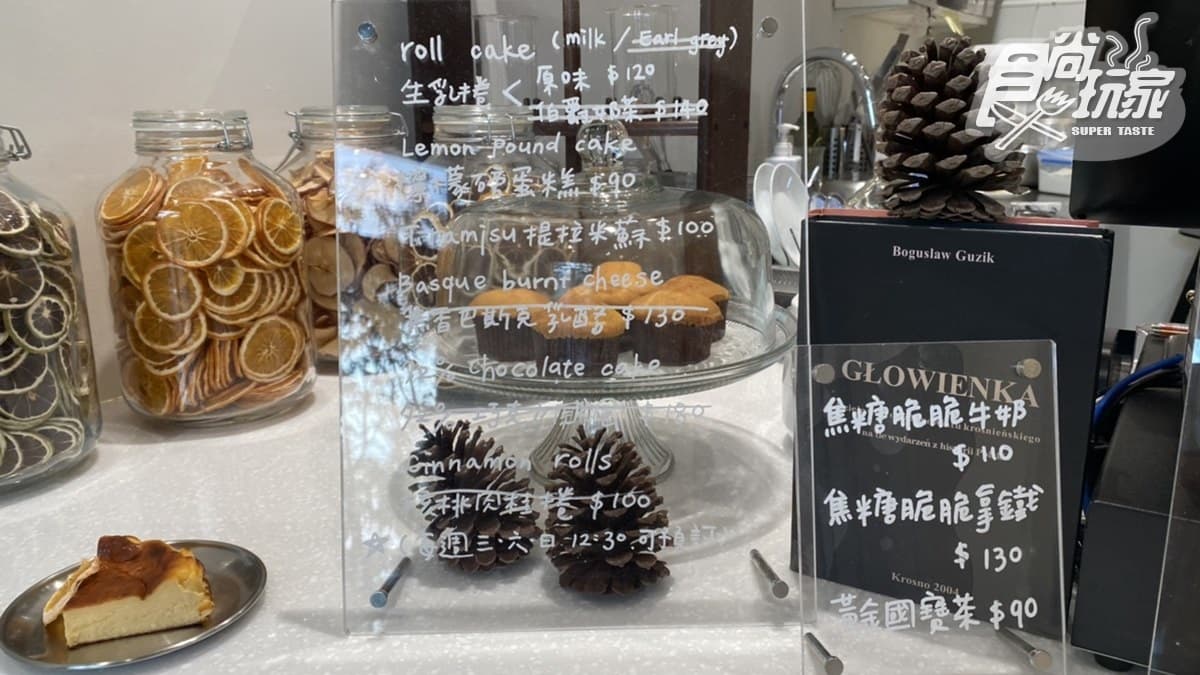 roll cake (milk / Earl grey)
生乳捲 < 原味 $120
伯爵奶茶 $140
Lemon pound cake
檸檬磅蛋糕 $90
Tiramisu 提拉米蘇 $100
Basque burnt cheese
巴斯克乳酪 $130
chocolate cake
Cinnamon rolls
肉桂捲 $100
☆ (每週三.六.日 12:30 可預訂)
焦糖脆脆牛奶
$110
焦糖脆脆拿鐵
$130
黃金國寶茶 $90
Boguslaw Guzik
GŁOWIENKA
krośnieńskiego
Krosno 2004
食尚玩家
SUPER TASTE